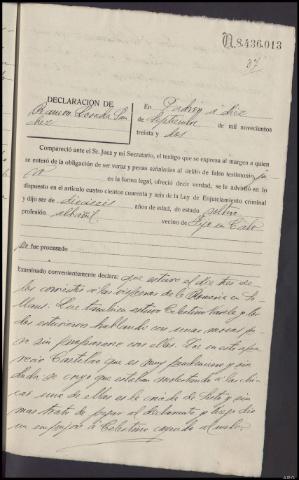 N.8.436.013
37
DECLARACION DE
Ramon Losada Sanchez
En Padrón a diez
de Septiembre de mil novecientos
treinta y dos
Compareció ante el Sr. Juez y mi Secretario, el testigo que se expresa al margen a quien
se enteró de la obligación de ser veraz y penas señaladas al delito de falso testimonio, ju
ra en forma legal, ofreció decir verdad, se le advirtió en lo
dispuesto en el artículo cuatro cientos cuarenta y seis de la Ley de Enjuiciamiento criminal
y dijo ser de dieciseis años de edad, de estado soltero
profesión albañil vecino de
No fue procesado
Examinado convenientemente declara: que estuvo el dia tres de
los corrientes a las vísperas de la Romeria en
Que tambien estuvo Celestino Varela y
los estuvieron hablando con unas mozas pe
ro sin propasarse con ellas. Que en esto apa
recio Castelao que es muy pendenciero y sin
duda se creyó que estaban molestando a las chi
cas una de ellas es la novia de este y sin
mas trato de pegar al declarante y luego dio
un empujon a Celestino cayendo al suelo